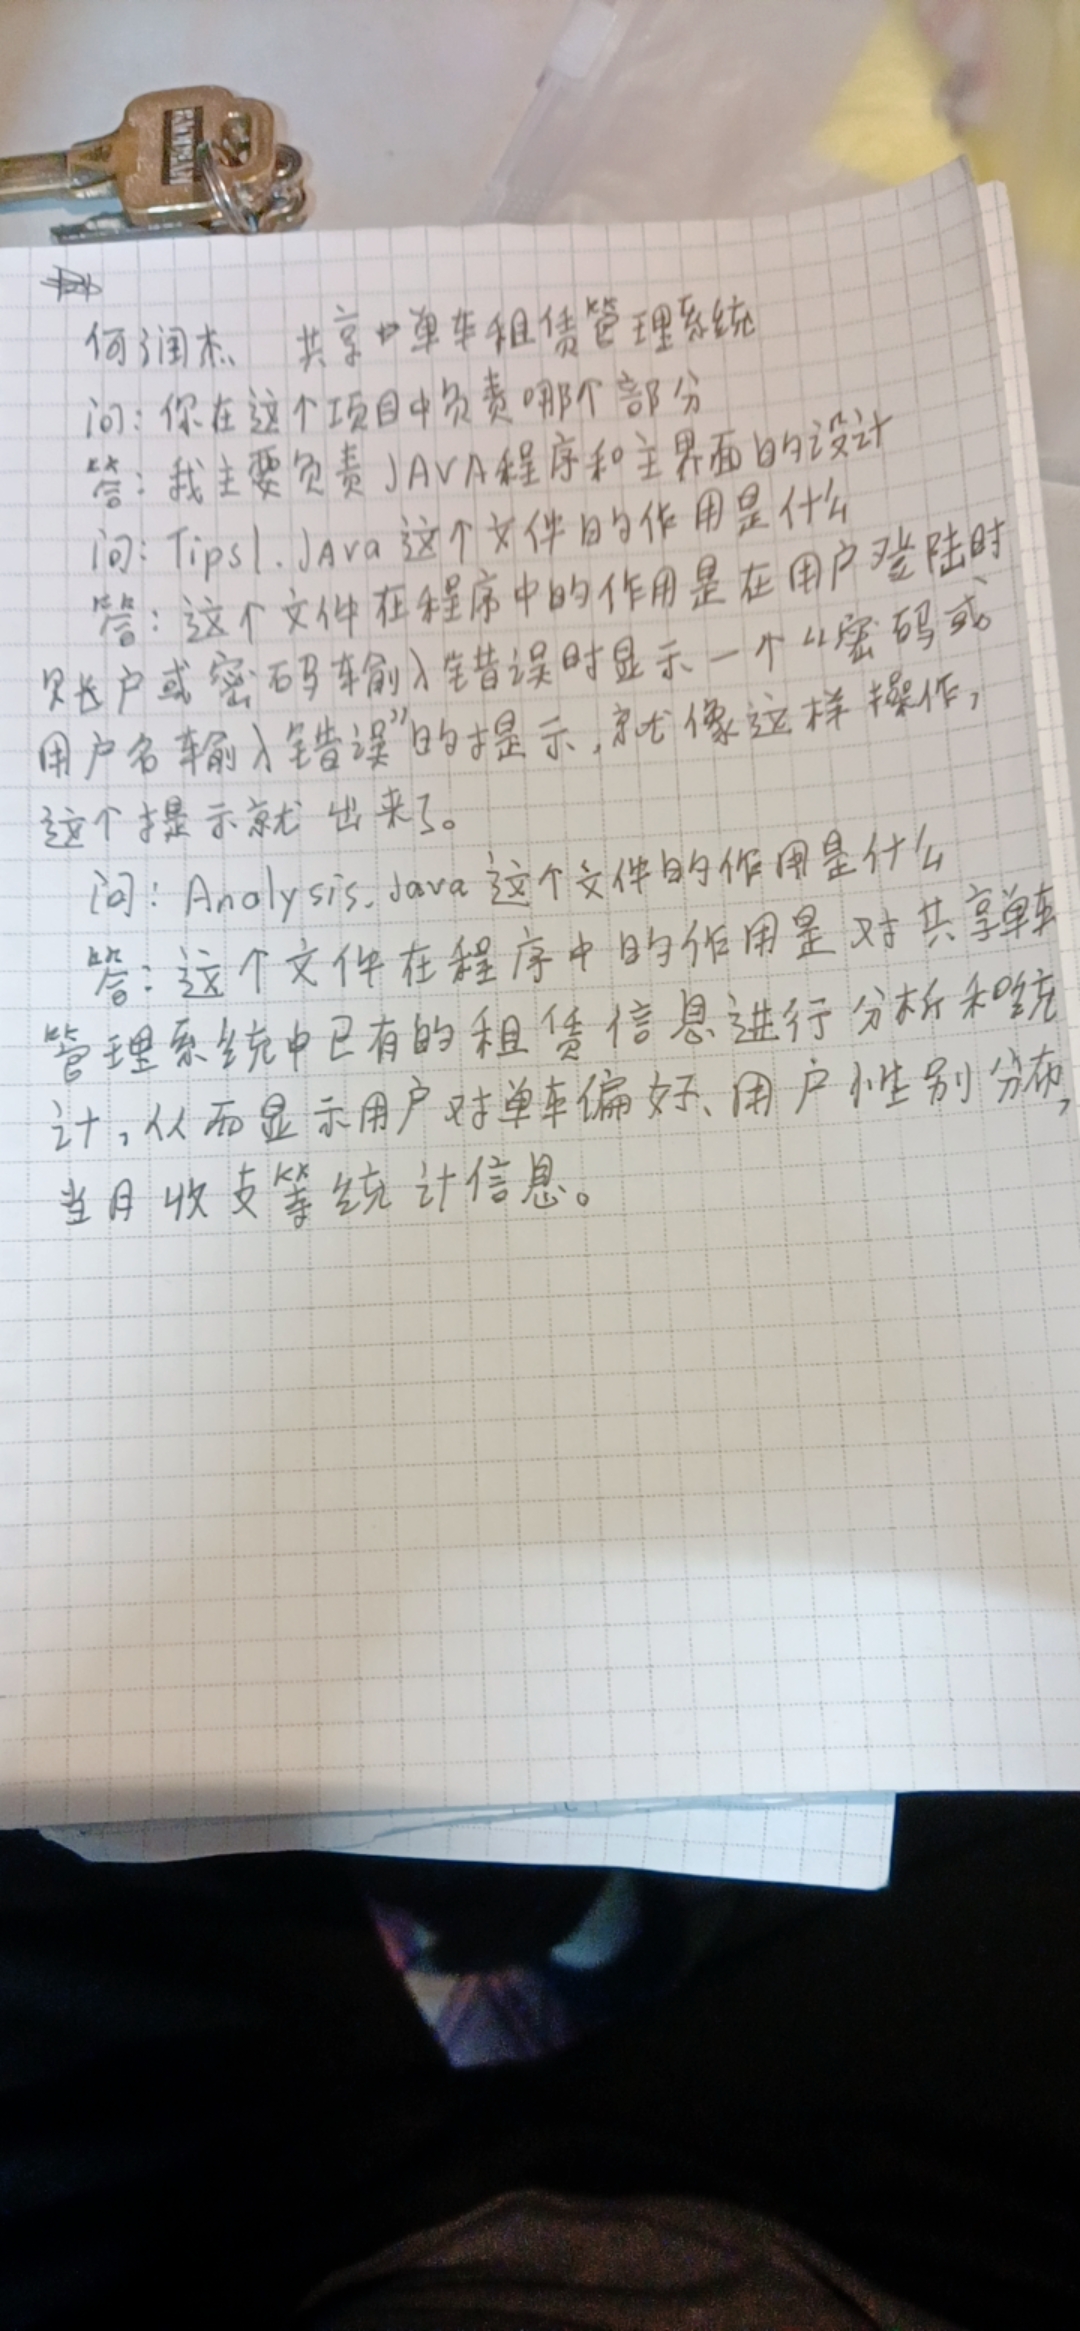 何润杰 共享单车租赁管理系统
问：你在这个项目中负责哪个部分
答：我主要负责JAVA程序和主界面的设计
问：Tips1.JAva这个文件的作用是什么
答：这个文件在程序中的作用是在用户登陆时
账户或密码输入错误时显示一个“密码或
用户名输入错误”的提示，就像这样操作，
这个提示就出来了。
问：Analysis.Java这个文件的作用是什么
答：这个文件在程序中的作用是对共享单车
管理系统中已有的租赁信息进行分析和统
计，从而显示用户对单车偏好、用户性别分布，
当月收支等统计信息。